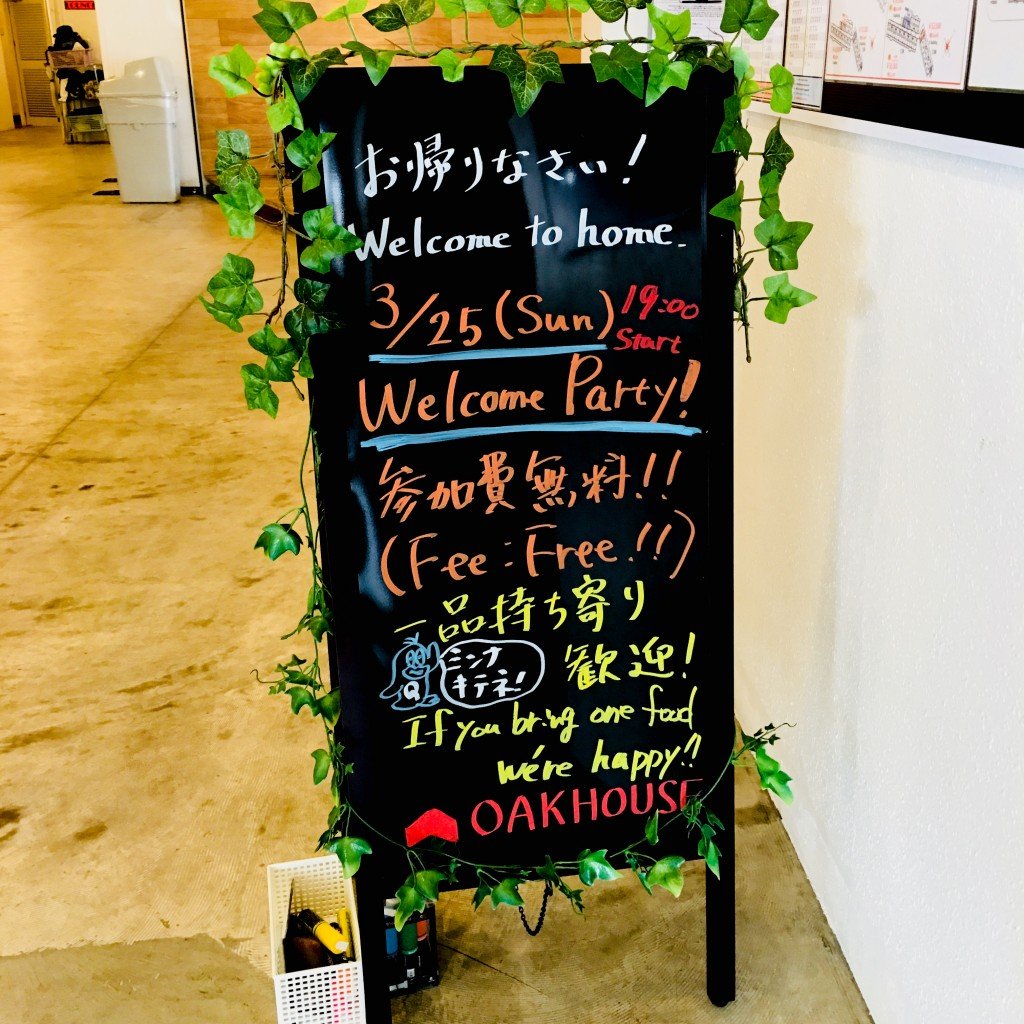 お帰りなさい!
Welcome to home.
3/25 (Sun) 19:00 Start
Welcome Party!
参加費無料!!
(Fee : Free!!)
一品持ち寄り
ミンナ
キテネ!
歓迎!
If you bring one food
we're happy!!
OAKHOUSE